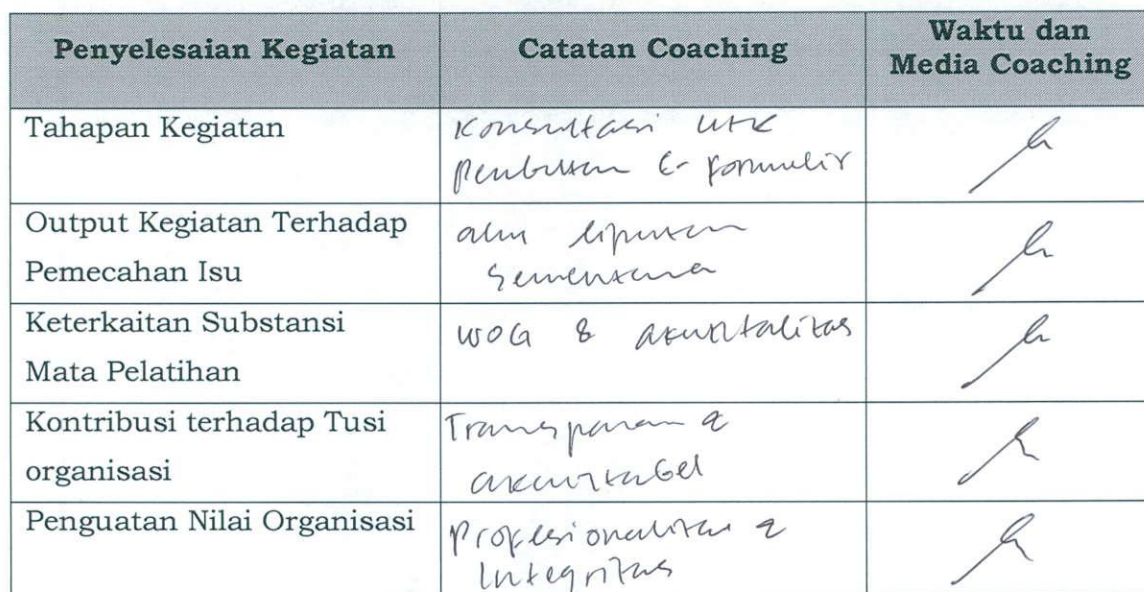 Penyelesaian Kegiatan
Catatan Coaching
Waktu dan
Media Coaching
Tahapan Kegiatan
Konsultasi utk
E-formulir
Output Kegiatan Terhadap
Pemecahan Isu
Sementara
Keterkaitan Substansi
Mata Pelatihan
WOG & akuntalitas
Kontribusi terhadap Tusi
organisasi
Transparan &
akuntabel
Penguatan Nilai Organisasi
Profesionalitas &
Integritas